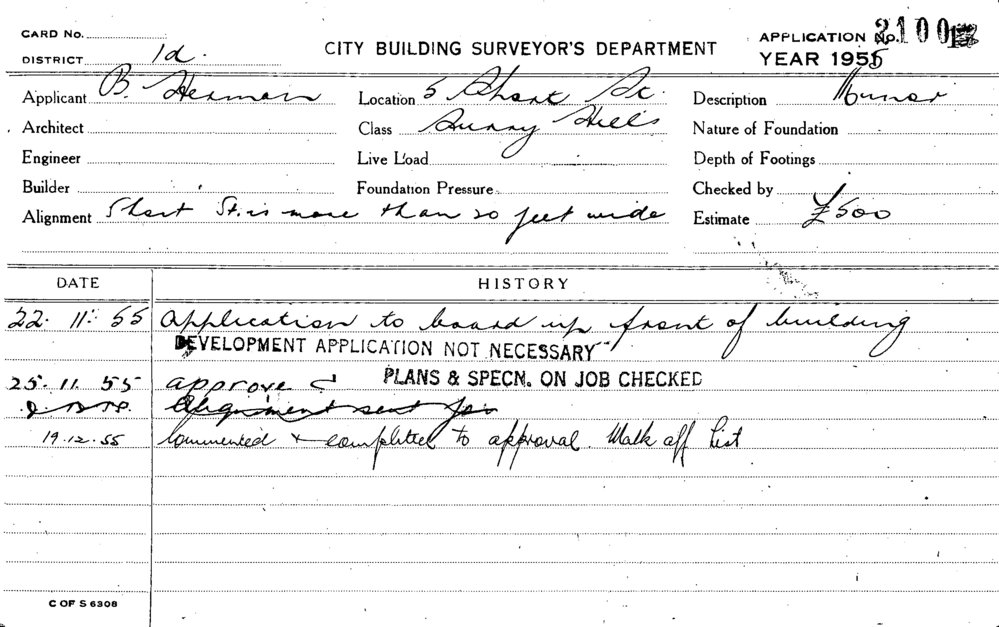 CARD No.
APPLICATION No. 2100
DISTRICT 1d.
CITY BUILDING SURVEYOR'S DEPARTMENT
YEAR 1955
Applicant B. Herman Location 5 Short St. Description Minor
Architect Class Surry Hills Nature of Foundation
Engineer Live Load Depth of Footings
Builder Foundation Pressure Checked by
Alignment Short St. is more than 20 feet wide Estimate £500
DATE HISTORY
22. 11. 55 Application to board up front of building
DEVELOPMENT APPLICATION NOT NECESSARY
25. 11. 55 approve PLANS & SPECN. ON JOB CHECKED
Alignment sent for
19.12.55 Commenced & completed to approval. Mark off list
C OF S 6308